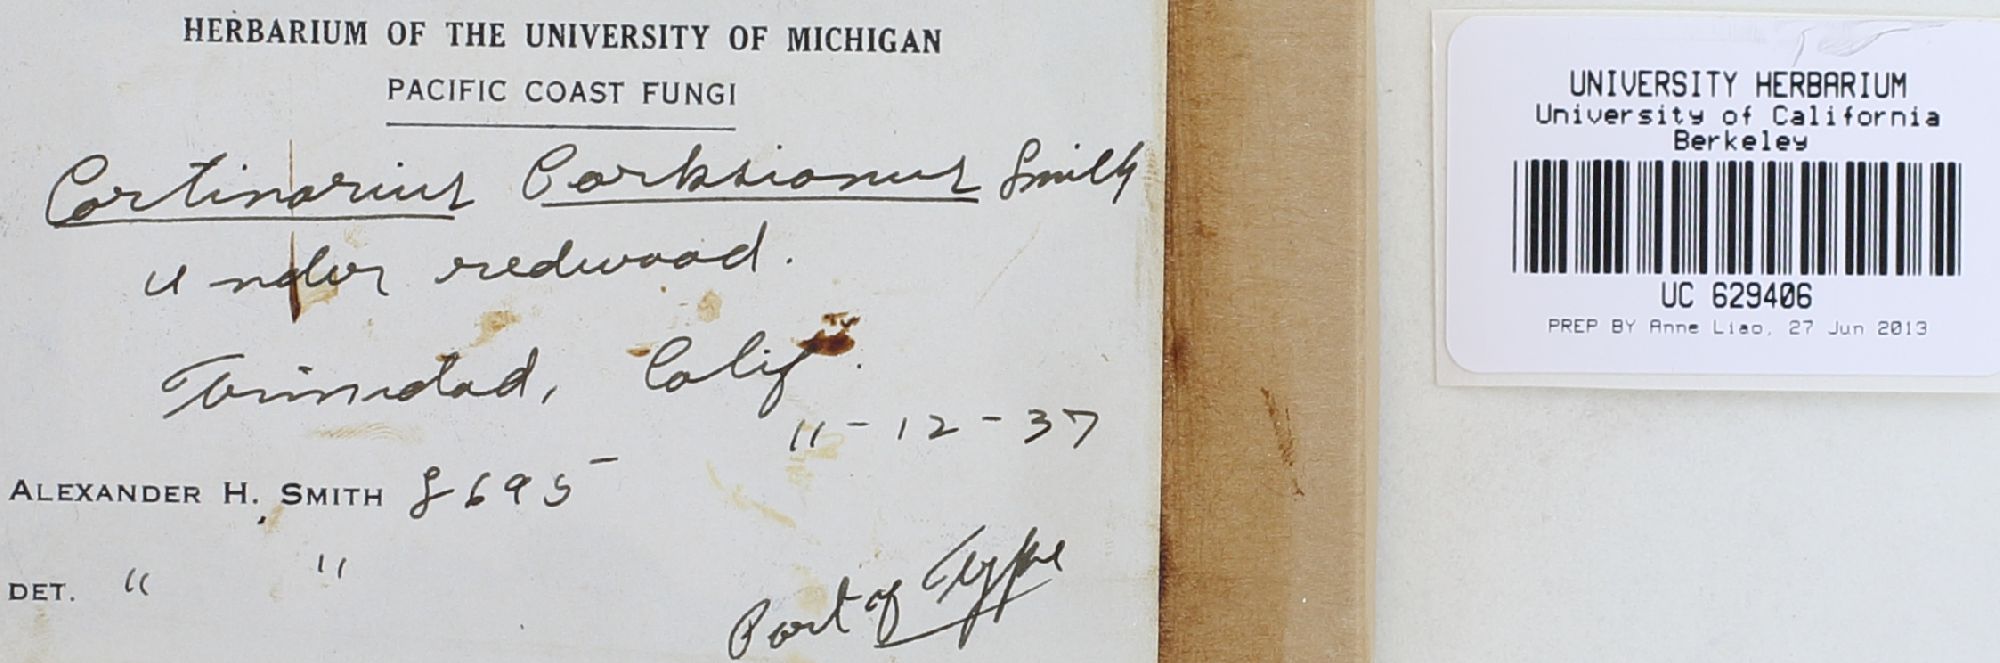 HERBARIUM OF THE UNIVERSITY OF MICHIGAN
PACIFIC COAST FUNGI
Cortinarius Smith
under redwood.
Trinidad, Calif.
11-12-37
ALEXANDER H. SMITH 8695
DET. " "
Part of Type
UNIVERSITY HERBARIUM
University of California
Berkeley
UC 629406
PREP BY Anne Liao, 27 Jun 2013